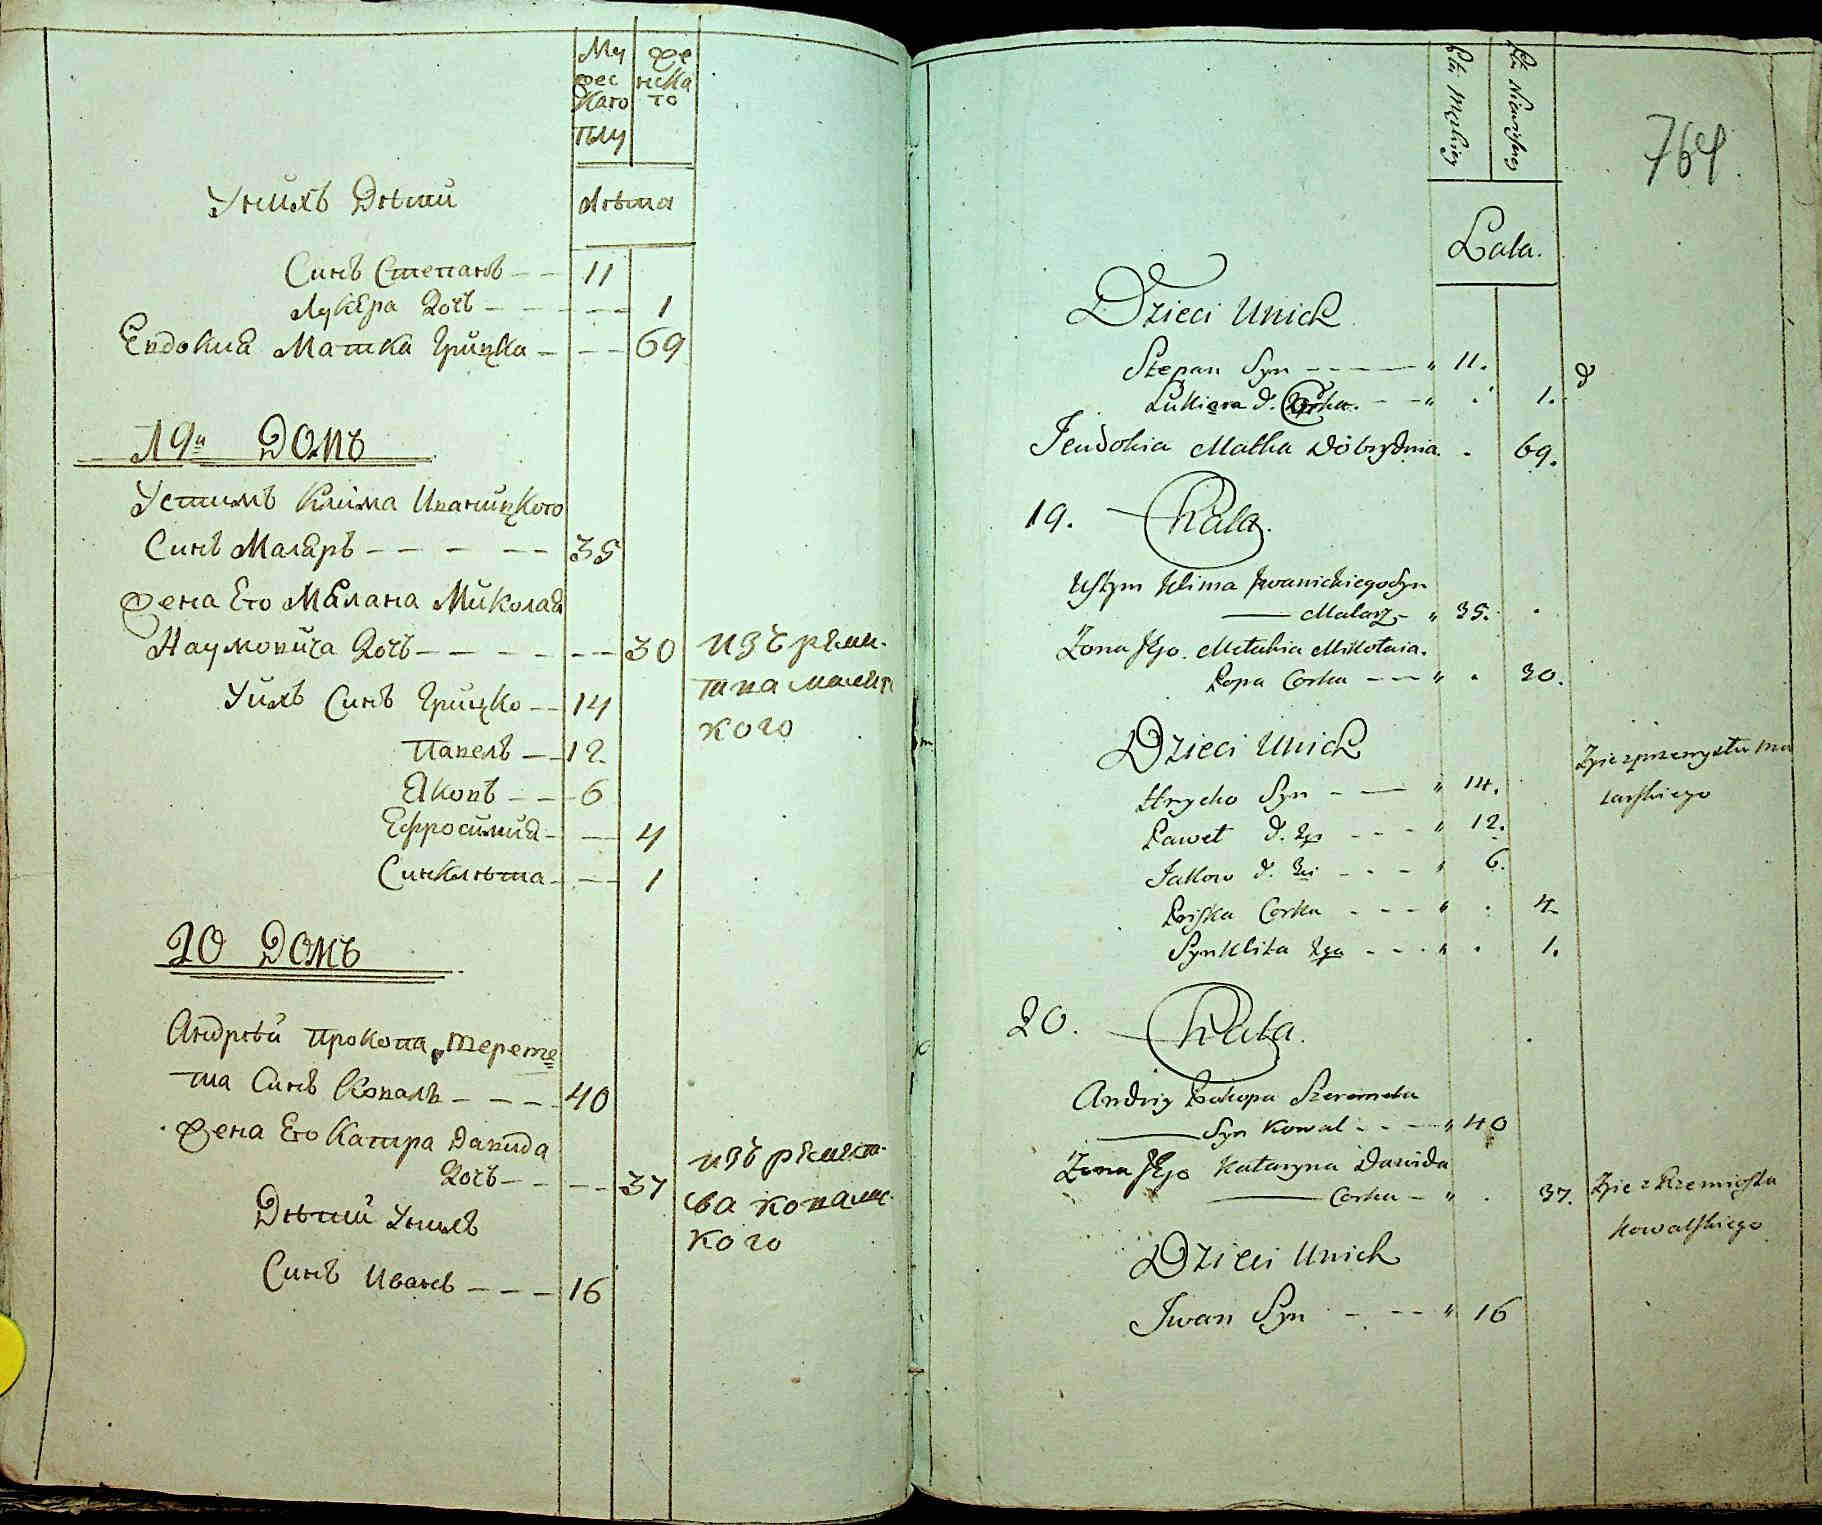 Му
жес
каго
полу
же
нска
го
лѣта
Унихъ Дѣтий
Синъ Степанъ - - 11
Лукера Дочь - - - - 1
Евдокия Матка Грицка - - - 69
19й Домъ
Устимъ Клима Иваницкого
Синъ Маляръ - - - - - 35
Жена Его Маланя Миколая
Наумовича Дочь - - - - - - 30
изъ реми-
тва маляр
кого
Уихъ Синъ Грицко - - 14
Павелъ - - 12
Яковъ - - 6
Ефросимия - - 4
Синклѣта - - - 1
20 Домъ
Андрѣй Прокопа Шереме
та Синъ Коваль - - - - 40
Жена Его Катра Давида
Дочь - - - - 37
изъ ремест-
ва ковальс-
кого
Дѣтий Унихъ
Синъ Иванъ - - - 16
764
Płci Męskiey
Płci Niewieściey
Lata.
Dzieci Unich
Stepan Syn - - - - - " 11.
Łukiera d. Córka. - - - " . 1.
Jeudokia Matka Dobrydnia . 69.
19. Chata.
Ustym Klima Iwanickiego Syn
Malarz - " 35. .
Żona Jego. Melakia Mikołaia.
Popa Corka - - - " . 30.
Dzieci Unich
Hrycko Syn - - - " 14.
Paweł d. - - - " 12.
Jakow d. - - - " 6.
Pryska Corka - - - " . 4.
Synklita - - - " . 1.
Żyie z przemysłu ma
larskiego
20. Chata.
Andriy Prokopa Szeremeta
Syn Kowal - - - " 40
Żona Jego Kataryna Dawida
Corka - " . 37.
Żyie z Rzemiosła
Kowalskiego
Dzieci Unich
Iwan Syn - - - " 16